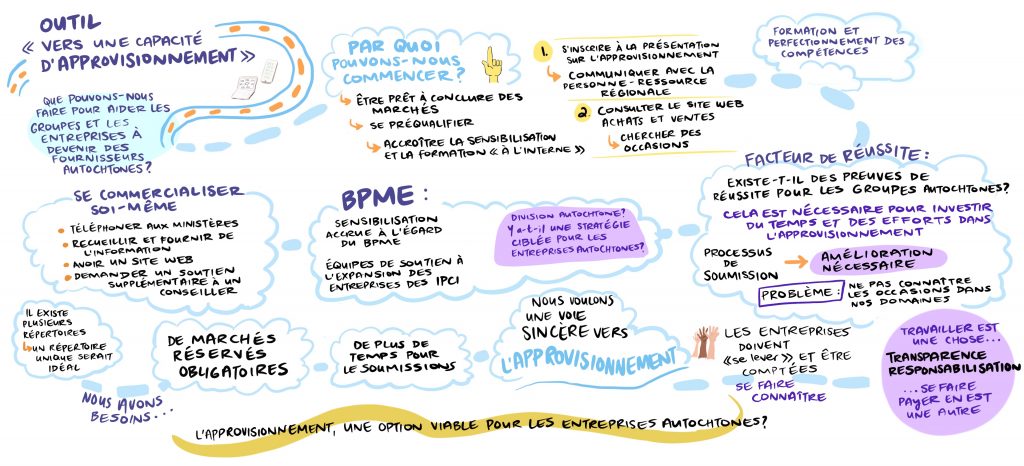 OUTIL
« VERS UNE CAPACITÉ
D'APPROVISIONNEMENT »
QUE POUVONS-NOUS
FAIRE POUR AIDER LES
GROUPES ET LES
ENTREPRISES À
DEVENIR DES
FOURNISSEURS
AUTOCHTONES ?
PAR QUOI
POUVONS-NOUS
COMMENCER ?
ÊTRE PRÊT À CONCLURE DES
MARCHÉS
SE PRÉQUALIFIER
ACCROÎTRE LA SENSIBILISATION
ET LA FORMATION « À L'INTERNE »
1. S'INSCRIRE À LA PRÉSENTATION
SUR L'APPROVISIONNEMENT
COMMUNIQUER AVEC LA
PERSONNE-RESSOURCE
RÉGIONALE
2 CONSULTER LE SITE WEB
ACHATS ET VENTES
CHERCHER DES
OCCASIONS
FORMATION ET
PERFECTIONNEMENT DES
COMPÉTENCES
SE COMMERCIALISER
SOI-MÊME
• TÉLÉPHONER AUX MINISTÈRES
• RECUEILLIR ET FOURNIR DE
L'INFORMATION
• AVOIR UN SITE WEB
• DEMANDER UN SOUTIEN
SUPPLÉMENTAIRE À UN
CONSEILLER
BPME :
SENSIBILISATION
ACCRUE À L'ÉGARD
DU BPME
ÉQUIPES DE SOUTIEN À
L'EXPANSION DES
ENTREPRISES DES IPCI
DIVISION AUTOCHTONE?
Y a-t-il UNE STRATÉGIE
CIBLÉE POUR LES
ENTREPRISES AUTOCHTONES?
FACTEUR DE RÉUSSITE :
EXISTE-T-IL DES PREUVES DE
RÉUSSITE POUR LES GROUPES AUTOCHTONES?
CELA EST NÉCESSAIRE POUR INVESTIR
DU TEMPS ET DES EFFORTS DANS
L'APPROVISIONNEMENT
PROCESSUS
DE
SOUMISSION
AMÉLIORATION
NÉCESSAIRE
PROBLÈME :
NE PAS CONNAÎTRE
LES OCCASIONS DANS
NOS DOMAINES
IL EXISTE
PLUSIEURS
RÉPERTOIRES
UN RÉPERTOIRE
UNIQUE SERAIT
IDÉAL
NOUS AVONS
BESOINS...
DE MARCHÉS
RÉSERVÉS
OBLIGATOIRES
DE PLUS DE
TEMPS POUR
LE SOUMISSIONS
NOUS VOULONS
UNE VOIE
SINCÈRE VERS
L'APPROVISIONNEMENT
LES ENTREPRISES
DOIVENT
«se lever» ET ÊTRE
COMPTÉES
SE FAIRE
CONNAÎTRE
TRAVAILLER EST
UNE CHOSE...
TRANSPARENCE
RESPONSABILISATION
...SE FAIRE
PAYER EN EST
UNE AUTRE
L'APPROVISIONNEMENT, UNE OPTION VIABLE POUR LES ENTREPRISES AUTOCHTONES?